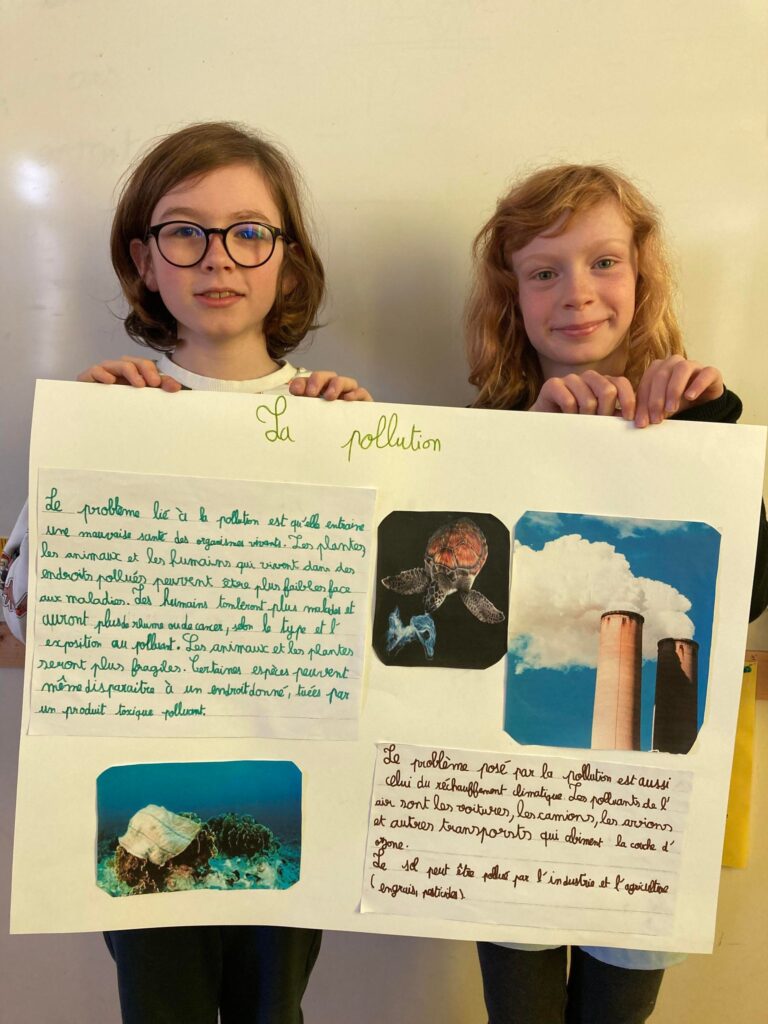 La pollution
Le problème lié à la pollution est qu'elle entraine
une mauvaise santé des organismes vivants. Les plantes,
les animaux et les humains qui vivent dans des
endroits pollués peuvent être plus faibles face
aux maladies. Les humains tomberont plus malades et
auront plus de rhume ou de cancer, selon le type et l'
exposition au polluant. Les animaux et les plantes
seront plus fragiles. Certaines espèces peuvent
même disparaitre à un endroit donné, tuées par
un produit toxique polluant.
Le problème posé par la pollution est aussi
celui du réchauffement climatique. Les polluants de l'
air sont les voitures, les camions, les avions
et autres transporsts qui abiment la couche d'
ozone.
Le sol peut être pollué par l'industrie et l'agriculture
(engrais, pesticides).